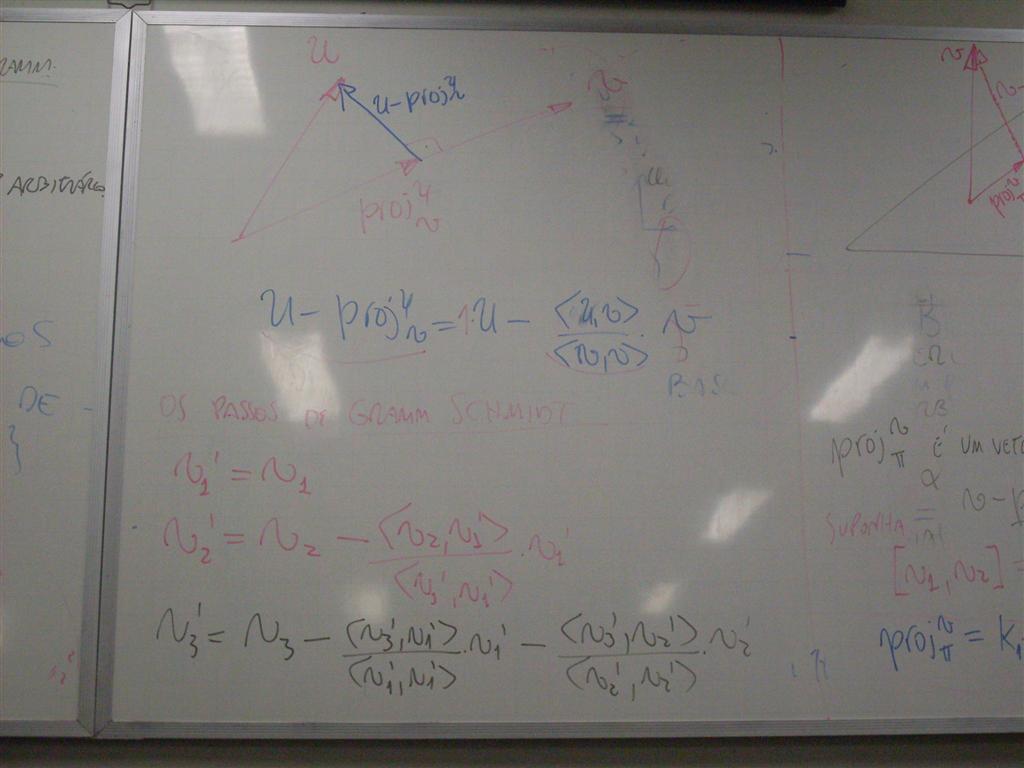 RAMM
ARBITRÁRIO
DE
}
u
u - proj_v^u
v
proj_v^u
u - proj_v^u = 1·u - <u,v>/<v,v> · v
OS PASSOS DE GRAMM SCHMIDT
v₁' = v₁
v₂' = v₂ - <v₂,v₁'>/<v₁',v₁'> · v₁'
v₃' = v₃ - <v₃',v₁'>/<v₁',v₁'> · v₁' - <v₃',v₂'>/<v₂',v₂'> · v₂'
v
proj_π^v É UM VETO
v - p
SUPONHA
[v₁, v₂] =
proj_π^v = K₁